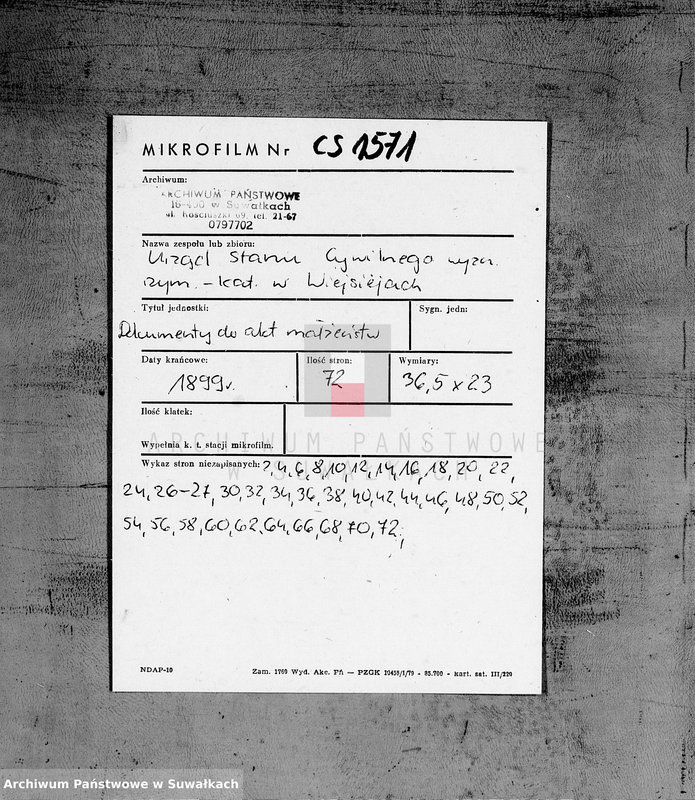 MIKROFILM Nr CS 1571
Archiwum:
ARCHIWUM PAŃSTWOWE
16-400 w Suwałkach
ul. Kościuszki 69, tel. 21-67
0797702
Nazwa zespołu lub zbioru:
Urząd Stanu Cywilnego wyzn.
rzym.-kat. w Wiejsiejach
Tytuł jednostki:
Sygn. jedn:
Dokumenty do akt małżeństw
Daty krańcowe:
Ilość stron:
Wymiary:
1899r.
72
36,5 x 23
Ilość klatek:
Wypełnia k. t. stacji mikrofilm.
ARCHIWUM PAŃSTWOWE
W SUWAŁKACH
Wykaz stron niezapisanych: 2,4,6,8,10,12,14,16,18,20,22,
24,26-27,30,32,34,36,38,40,42,44,46,48,50,52,
54,56,58,60,62,64,66,68,70,72;
NDAP-10
Zam. 1760 Wyd. Akc. Fń — PZGK 10459/I/79 - 85.700 - kart. sat. III/220
Archiwum Państwowe w Suwałkach